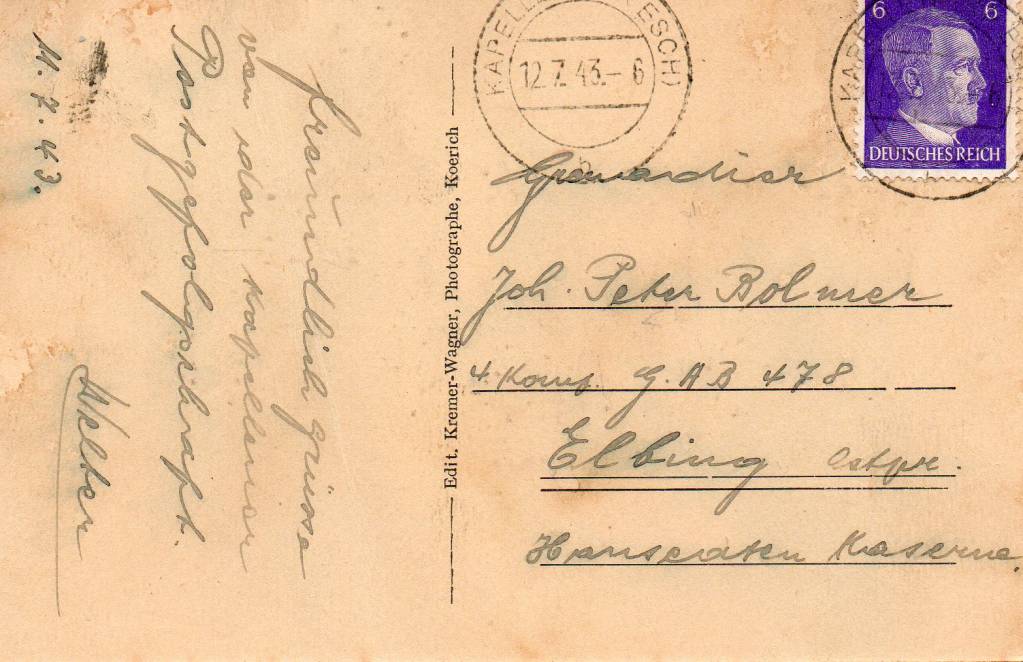 Freundlich grüsse
von der Kapellener
Postgefolgschaft.
Welter
11.7.43.
Edit. Kremer-Wagner, Photographe, Koerich
KAPELL ESCH)
12.7.43.- 6
b
6 6
DEUTSCHES REICH
KAPE
Grenadier
Joh. Peter Bolmer
4 Komp. G.A B 478
Elbing Ostpr.
Hanseaten Kaserne.